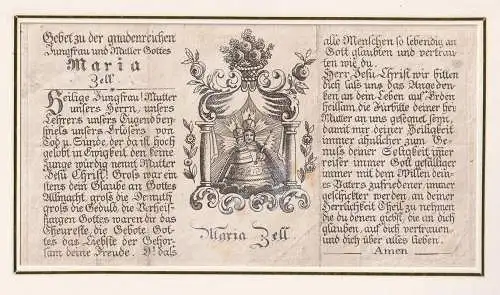 Gebet zu der gnadenreichen
Jungfrau und Mutter Gottes
Maria
Zell.
Heilige Jungfrau! Mutter
unsers Herrn, unsers
Lehrers unsers Tugendbey-
spiels unsers Erlösers von
Tod u. Sünde, der da ist hoch
gelobt in Ewigkeit, den keine
Zunge würdig nennt, Mutter
Jesu Christ! Groß war ein-
stens dein Glaube an Gottes
Allmacht, groß die Demuth,
groß die Geduld, die
Gottes waren dir das
Theureste, die Gebote Got-
tes das Liebste der Gehor-
sam deine Freude. O! daß
Maria Zell.
alle Menschen so lebendig an
Gott glaubten und vertrau-
ten wie du.
Herr Jesu Christ wir bitten
dich laß uns das Angeden-
ken an dein Leben auf Erden
heilsam, die Fürbitte deiner hei
Mutter an uns gesegnet seyn,
damit wir deiner Heiligkeit
immer ähnlicher zum Ge-
nuß deiner Seligkeit immer
reifer immer Gott gefälliger
immer mit dem Willen dein-
es Vaters zufriedener immer
geschickter werden, an deiner
Herrlichkeit Theil zu nehmen
die du denen giebst, die an dich
glauben, auf dich vertrauen
und dich über alles lieben.
Amen